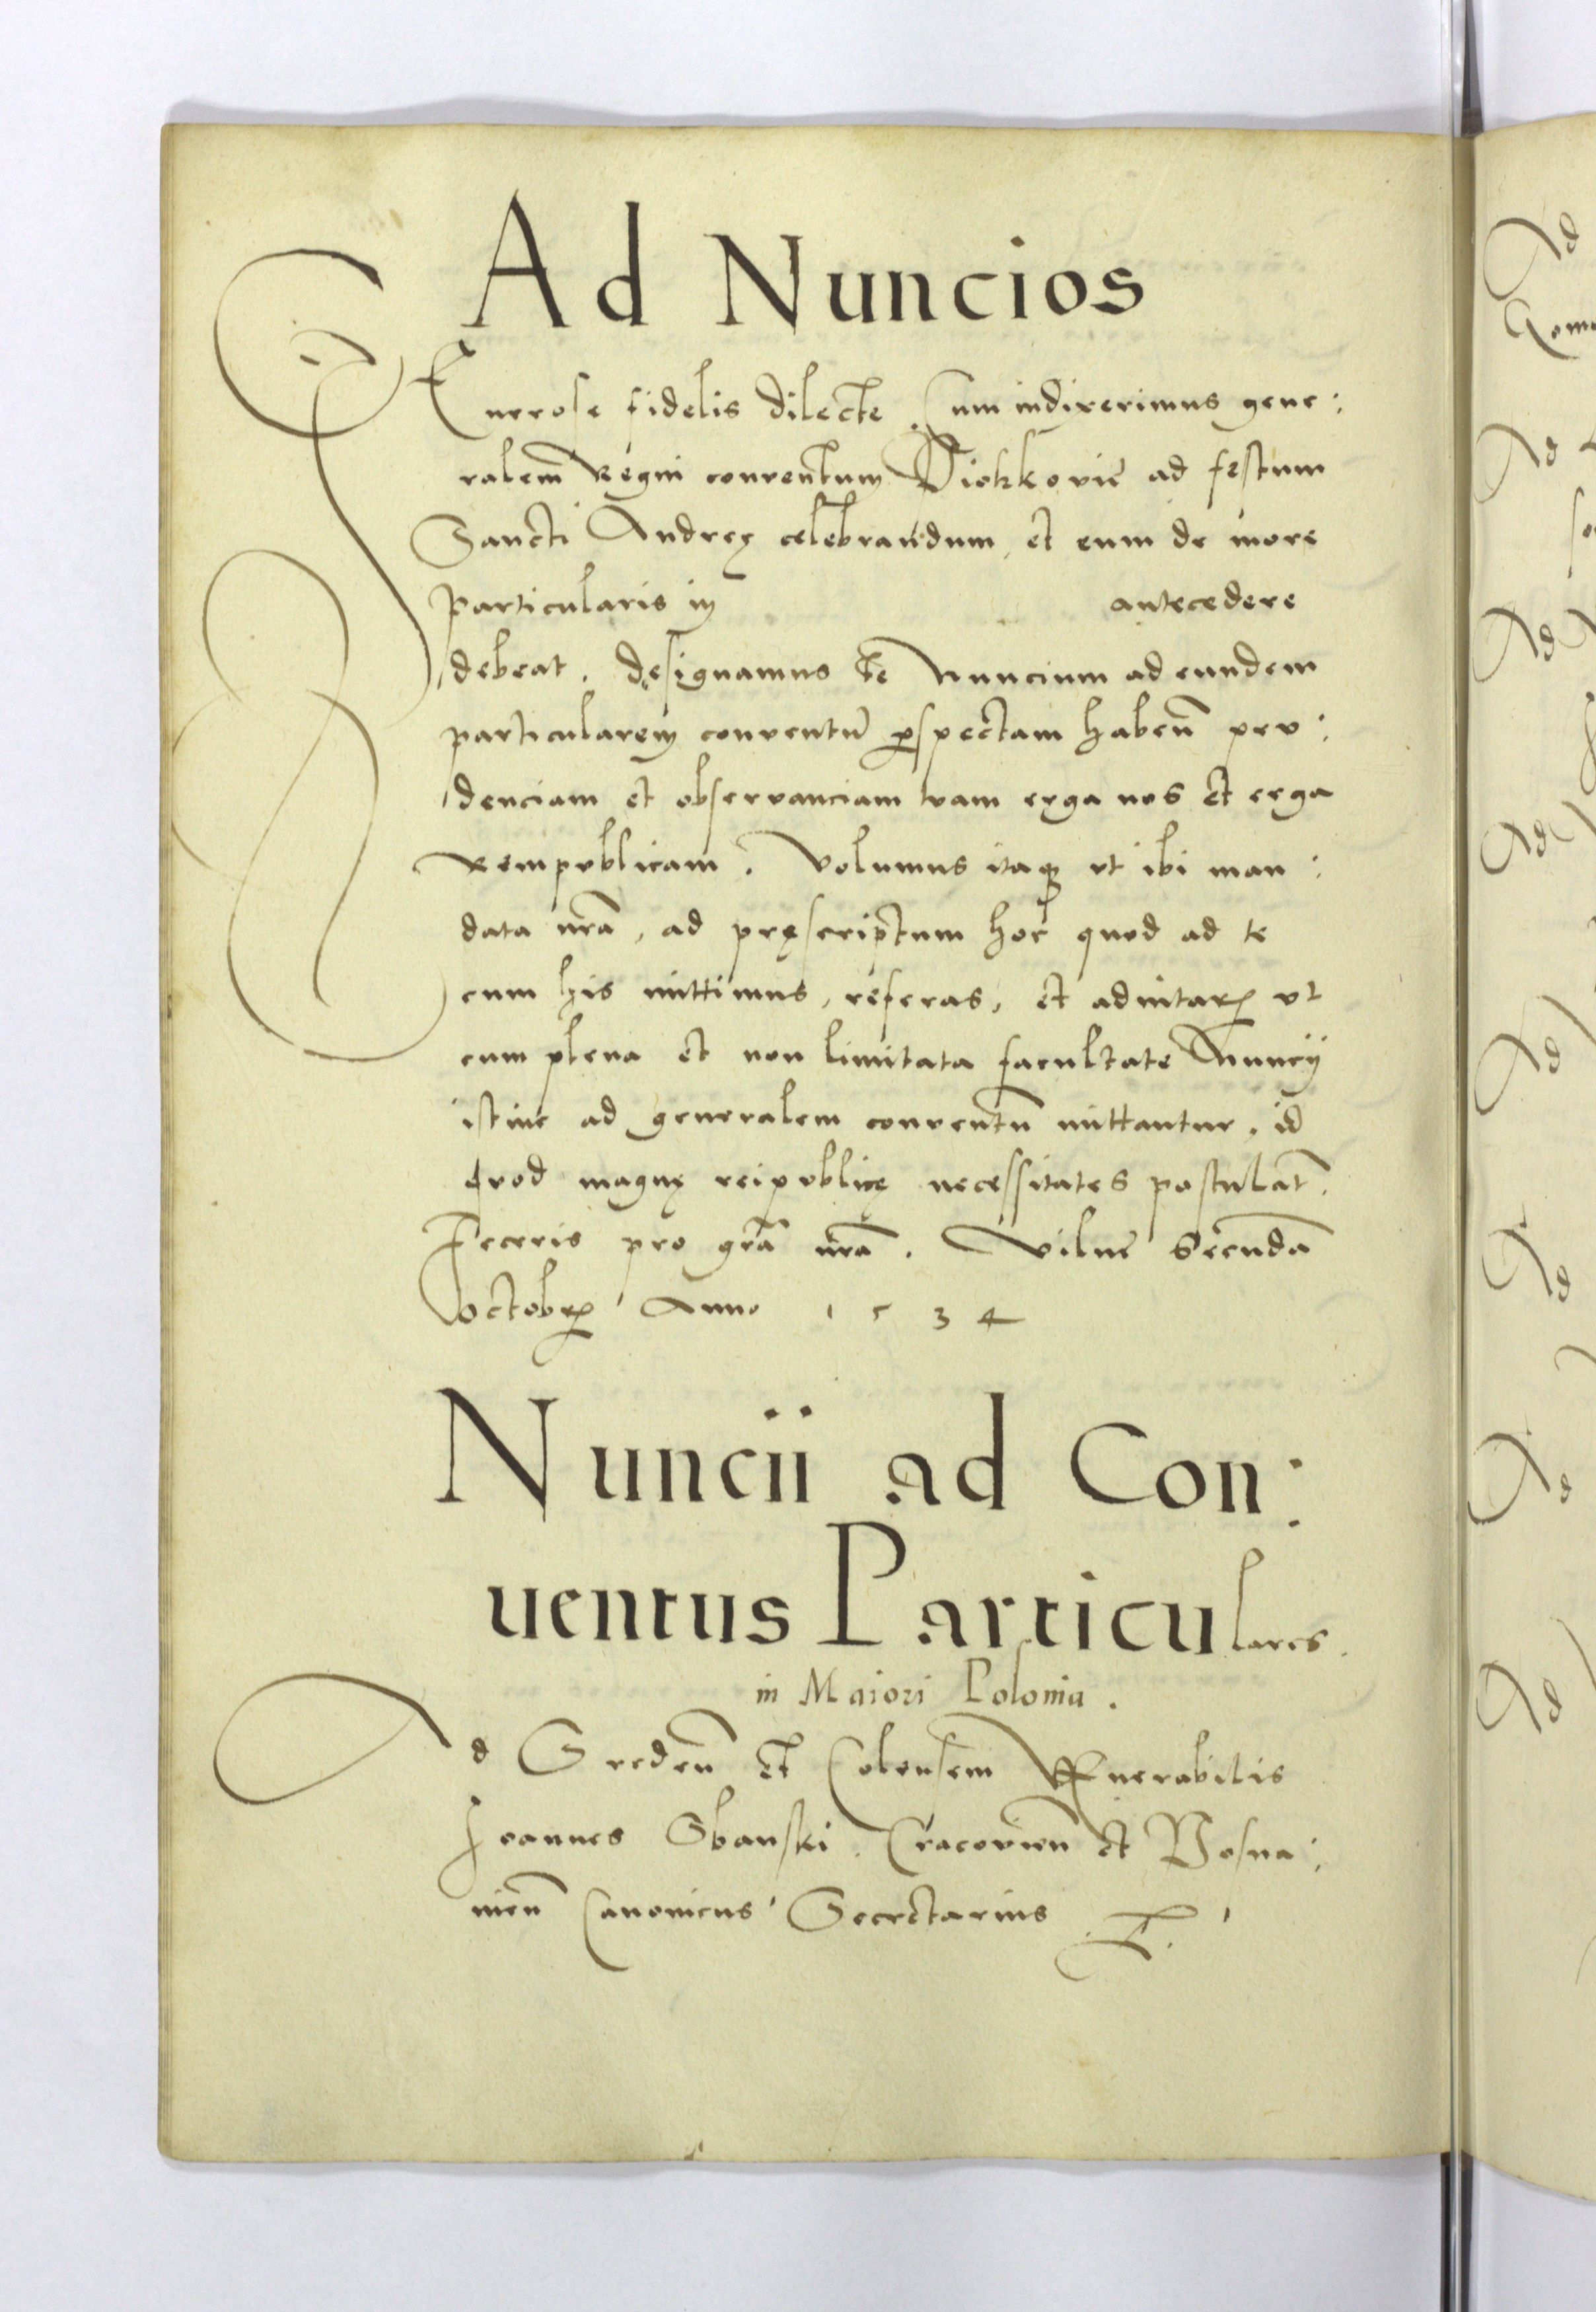 Ad Nuncios
Generose fidelis dilecte. Cum indixerimus gene:
ralem Regni conventum Piotrkovie ad festum
Sancti Andreę celebrandum, et eum de more
particularis in antecedere
debeat. dęsignamus te Nuncium ad eundem
particularem conventũ ꝑspectam habeñ pru:
denciam et observanciam tuam erga nos et erga
Rempublicam. Volumus itaqꝫ ut ibi man:
data nrã, ad pręscriptum hoc quod ad te
cum his mittimus, referas, et adnitarꝭ ut
cum plena et non limitata facultate Nuncij
istinc ad generalem conventũ mittantur, id
quod magnę reipublicę necessitates postulãt.
Feceris pro grã nrã. Vilne Secundã
Octobrꝭ Anno 1534
Nuncii ad Con:
uentus Particulares.
in Maiori Polonia.
Ad Sredeñ et Colensem Venerabilis
Joannes Sbanski. Cracovieñ et Posna:
nieñ Canonicus Secretarius
Ad
Ad
Ad
Ad
Ad
Ad
Ad
Ad